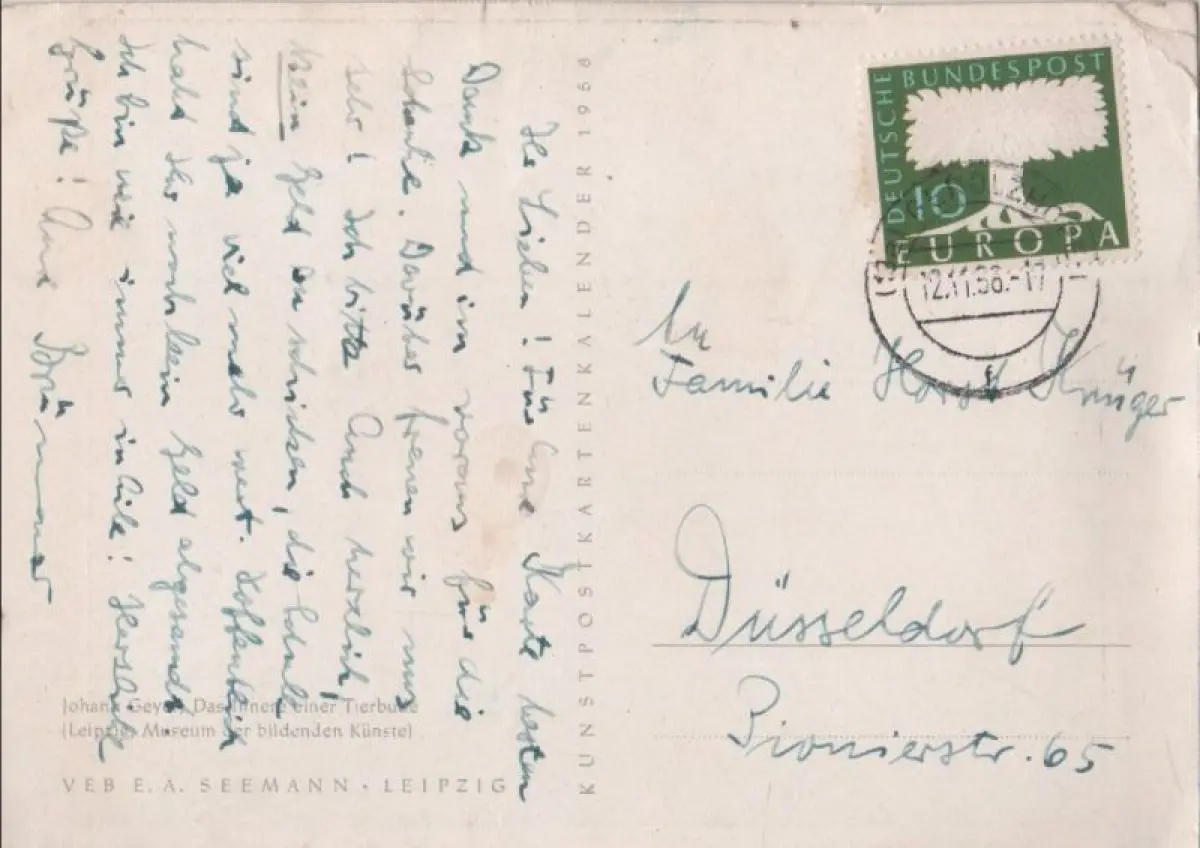 Ihr Lieben! Für Eure Karte besten
Dank und im voraus für die
Schuhe. Darüber freuen wir uns
sehr! Ich bitte Euch herzlich,
kein Geld zu schicken, die Schuhe
sind ja viel mehr wert. Hoffentlich
habt Ihr noch kein Geld abgesandt.
Ich bin wie immer in Eile! Herzliche
Grüße! Eure
KUNSTPOSTKARTENKALENDER 1956
Johann Geyer, Das Innere einer Tierbude
(Leipzig, Museum der bildenden Künste)
VEB E. A. SEEMANN · LEIPZIG
DEUTSCHE BUNDESPOST
10
EUROPA
12.11.58.-17
An
Familie Horst Krüger
Düsseldorf
Pionierstr. 65